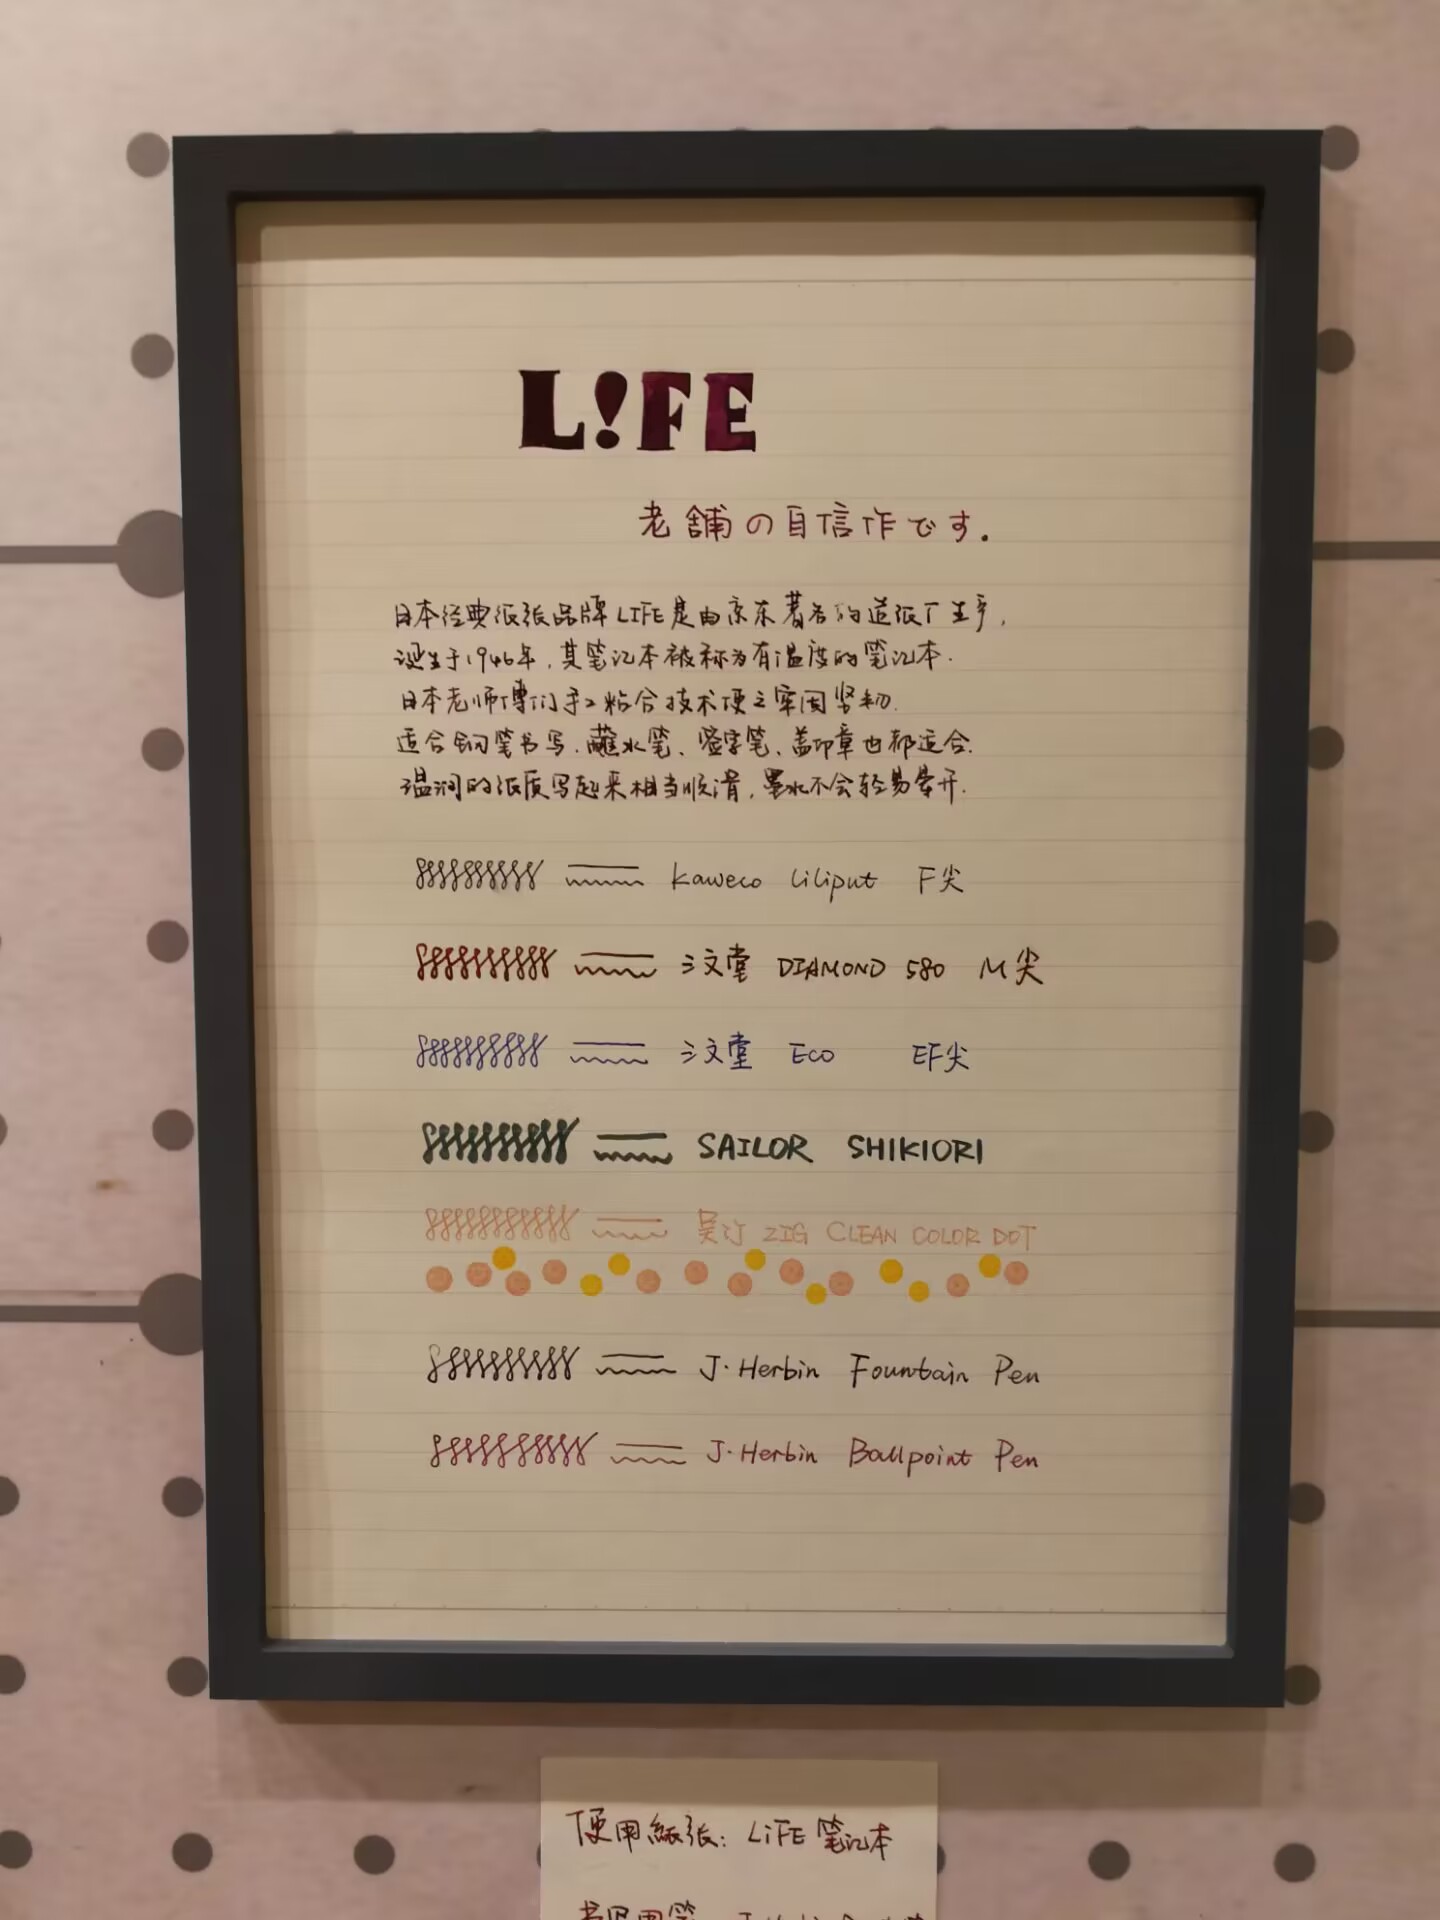 L!FE
老舗の自信作です.
日本经典纸张品牌LIFE是由京东著名的造纸厂生产,
诞生于1946年,其笔记本被称为有温度的笔记本.
日本老师傅们手工粘合技术使之牢固坚韧.
适合钢笔书写、蘸水笔、签字笔、盖印章也都适合.
温润的纸质写起来相当顺滑,墨水不会轻易晕开.
Kaweco Liliput F尖
三文堂 DIAMOND 580 M尖
三文堂 Eco EF尖
SAILOR SHIKIORI
吴竹 ZIG CLEAN COLOR DOT
J·Herbin Fountain Pen
J·Herbin Ballpoint Pen
使用紙张: LiFE 笔记本
书写用笔